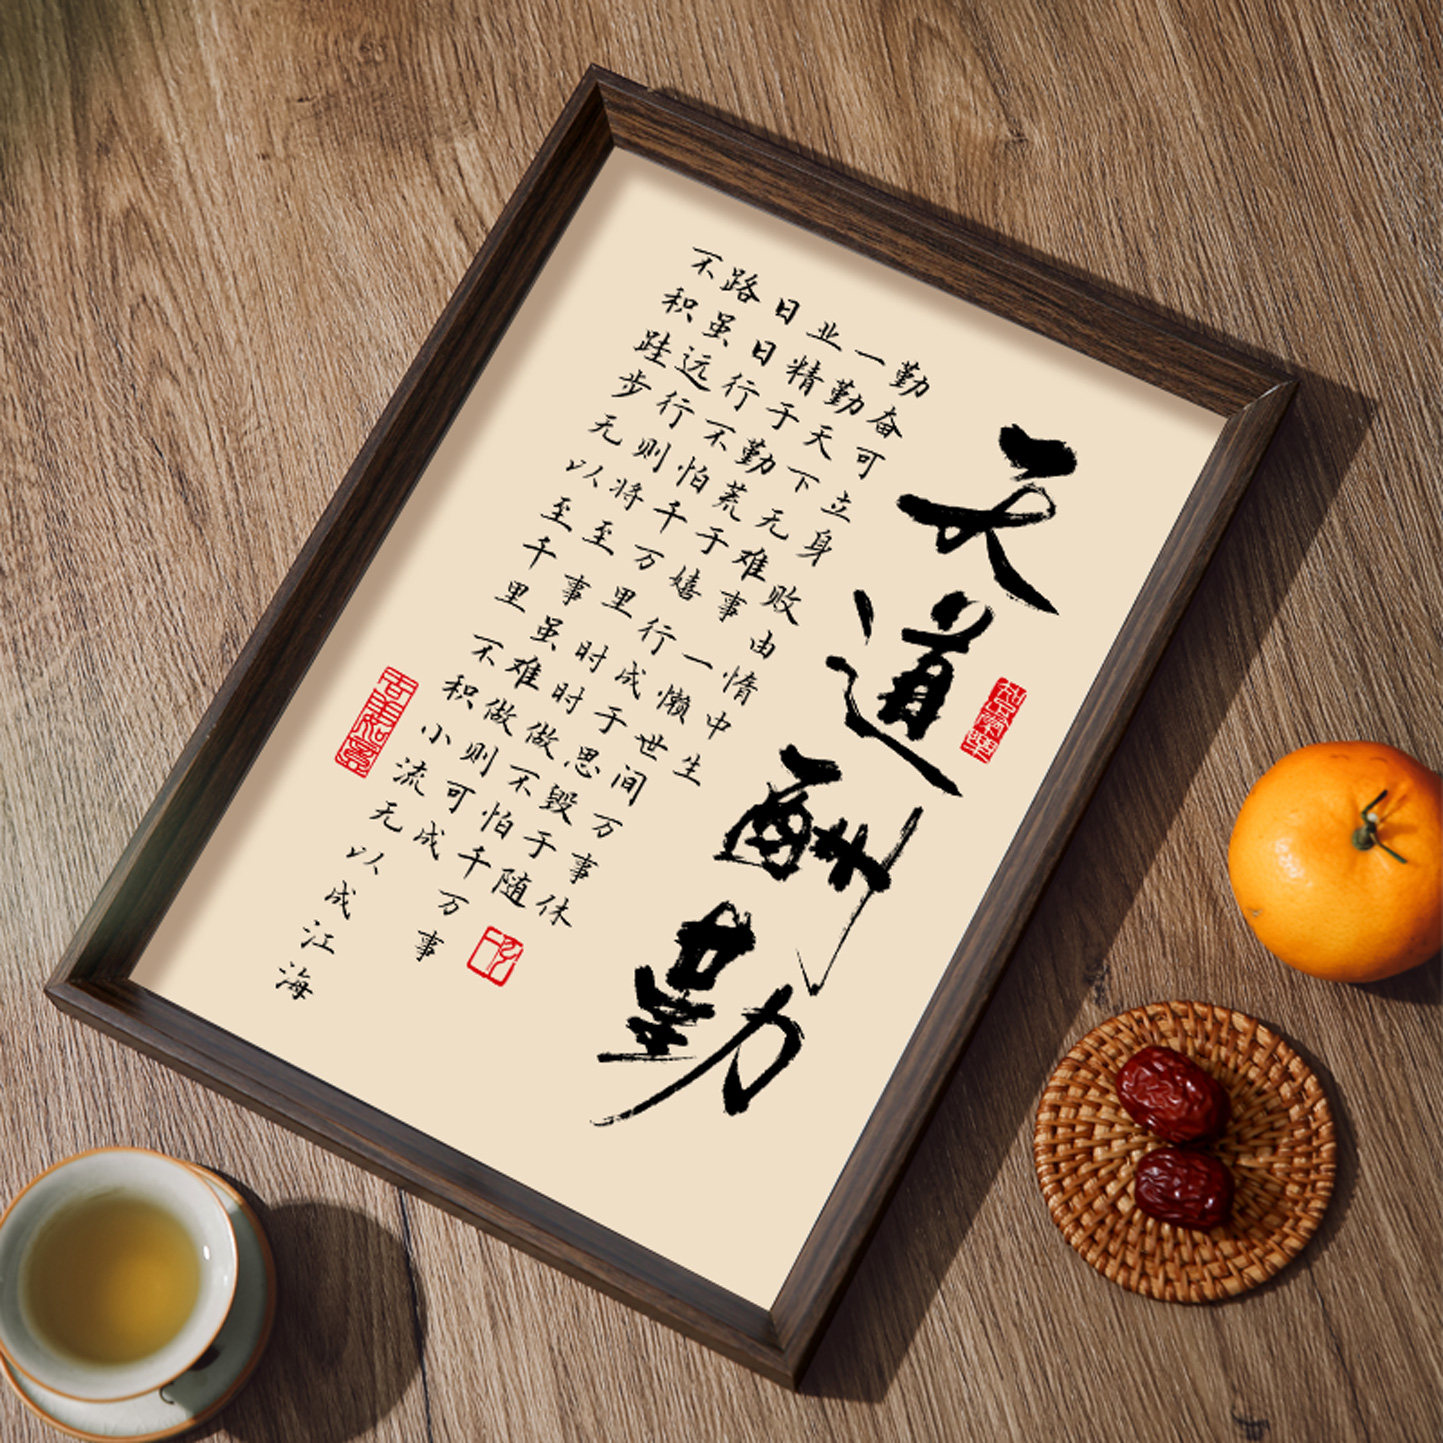 天道酬勤
知足常樂
勤奋可立身败由惰中生
一勤天下无难事一懒世间万事休
业精于勤荒于嬉行成于思毁于随
日日行不怕千万里时时做不怕千万事
路虽远行则将至事虽难做则可成
不积跬步无以至千里不积小流无以成江海